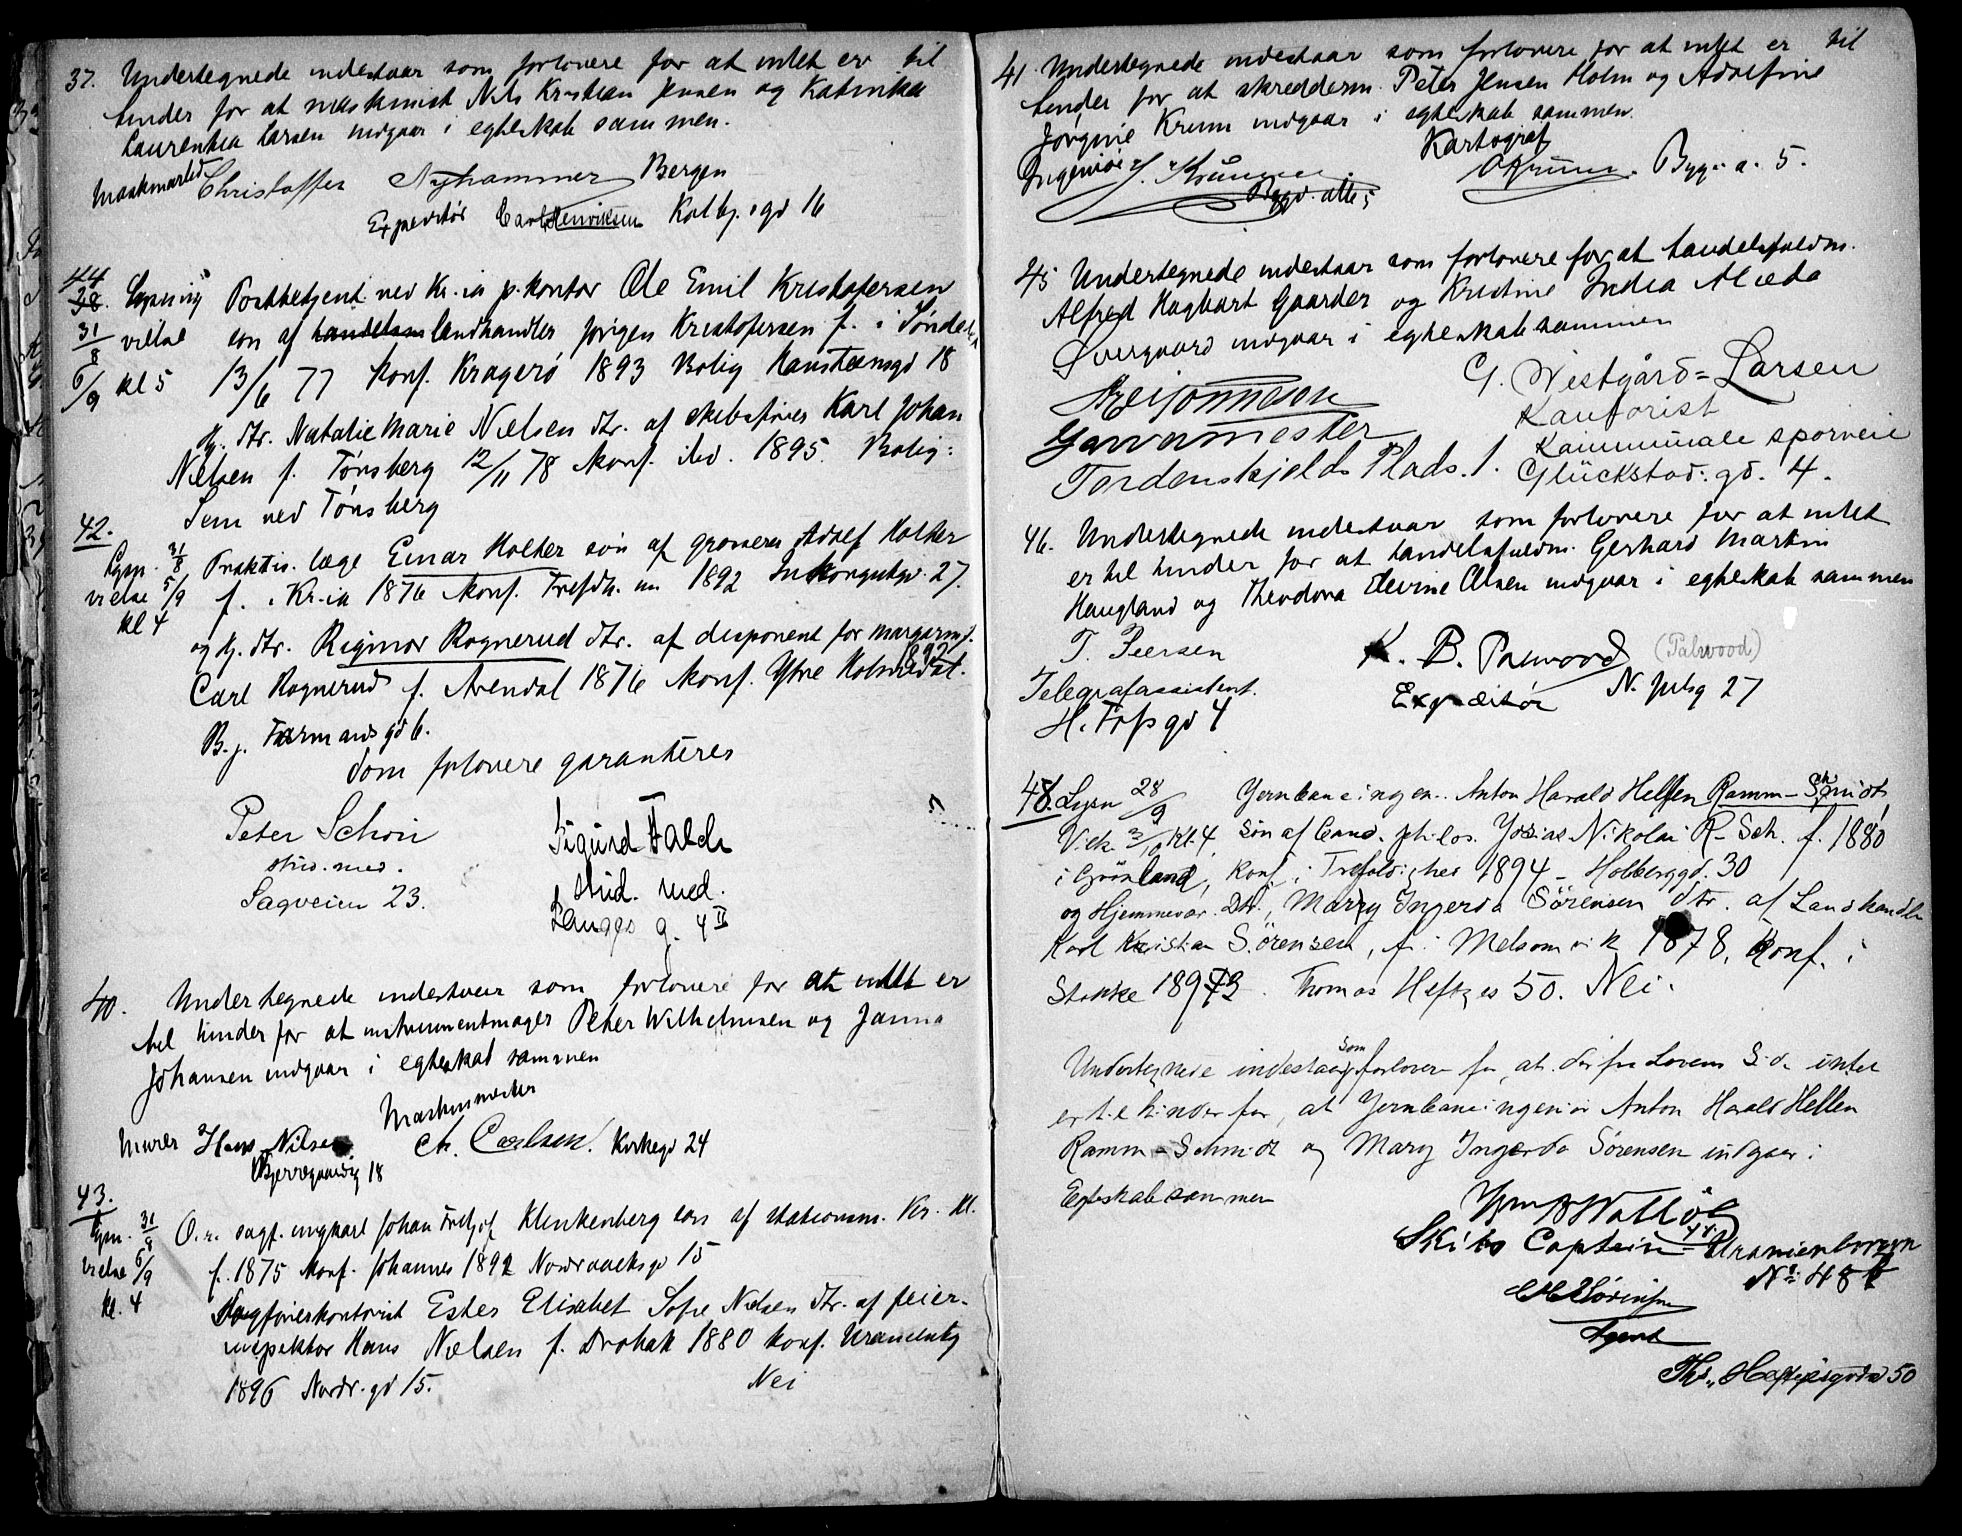 37. Undertegnede indestaar som forlovere for at intet er til
hinder for at maskinist Nils Kristian Jensen og Katinka
Laurentia Larsen indgaar i egteskab sammen.
Christoffer Nyhammer Bergen
Expeditør Carl Henriksen Kolbj.gd 16
44
38. Lysning Postbetjent ved Kr.ia p.kontor Ole Emil Kristofersen
31/8 vielse søn af handelsm landhandler Jørgen Kristofersen f. i Sønde
6/9 kl 5 13/6 77 konf. Kragerø 1893 Bolig Hansteensgd 18
Pg. dtr. Natalie Marie Nielsen dtr. af skibsfører Karl Johan
Nielsen f. Tønsberg 12/11 78 konf. ibd. 1895. Bolig:
Sem ved Tønsberg
42.
Lysn. 31/8 Praktis. læge Einar Holter søn af grosserer Adolf Holter
vielse 5/9 f. i Kr.ia 1876 konf. Trefdh. 1892 Inkognitogd. 27.
kl 4
og Pg. dtr. Rigmor Rognerud dtr. af disponent for margarinf.
Carl Rognerud f. Arendal 1876 konf. Ytre Holmedal. 1892
B.j. Farmandsgd 6.
Som forlovere garanteres
Peter Schou Sigurd Falch
stud. med. stud. med.
Sagveien 23. Langes g. 4 II
40. Undertegnede indestaar som forlovere for at intet er
til hinder for at instrumentmager Peter Wilhelmsen og Janna
Johansen indgaar i egteskab sammen
Maskinmester
Murer Hans Nilsen Ch. Carlsen. Kirkegd 24
Bjerregaardsg 18
43.
Lysn. 31/8 O.r. sagf. ungkarl Johan Fritjof Klinkenberg søn af stationsm. Kr. Kl.
vielse 6/9 f. 1875 konf. Johannes 1892 Nordraaksgd 15
kl. 4
Sagførerkontorist Ester Elisabet Sofie Nielsen dtr. af feier-
inspektør Hans Nielsen f. Drøbak 1880 konf. Uranienbg
1896 Nordr.gd 15. Nei
41. Undertegnede indestaar som forlovere for at intet er til
hinder for at skrædderm. Peter Jensen Holm og Adolfine
Jørgine Krum indgaar i egteskab sammen.
Kartograf
Ingeniør J. Krum O Krum. Bygd. a. 5.
Bygd. alle 5
45 Undertegnede indestaar som forlovere for at handelsfuldm.
Alfred Hagbart Gaarder og Kristine Indea Alida
Overgaard indgaar i egteskab sammen
G. Vestgård-Larsen
Kontorist
Garvermester Kommunale sporveie
Tordenskjolds Plads. 1. Glückstad. gd. 4.
46. Undertegnede indestaar som forlovere for at intet
er til hinder for at handelsfuldm. Gerhard Martin
Haugland og Theodora Elevine Olsen indgaar i egteskab sammen
T. Iversen K. B. Palwood (Palwood)
Telegrafassistent. Expeditør N. Julsg 27
H. Tofs gd 4
48. Lysn 28/9 Jernbaneingen. Anton Harald Helfen Ramm-Schmidt,
Viels 3/10 Kl. 4. søn af Cand. philos. Josias Nikolai R-Sch. f. 1880
i Grønland, konf. i Trefoldighed 1894 - Holberggd. 30
og Hjemmevær. Dtr., Mary Ingerda Sörensen dtr. af Landhandler
Karl Kristian Sörensen, f. i Melsomvik 1878, konf. i
Stokke 1893. Thomas Heftyes 50. Nei.
Undertegnede indestaar som forlovere for, at der fra Lovens Side intet
er til hinder for, at Jernbaneingeniør Anton Harald Helfen
Ramm-Schmidt og Mary Ingerda Sørensen indgaar i
Egteskab sammen
Skibs Captein Uranienborgvn
No 48 b
Agent
Ths. Heftyesgade 50